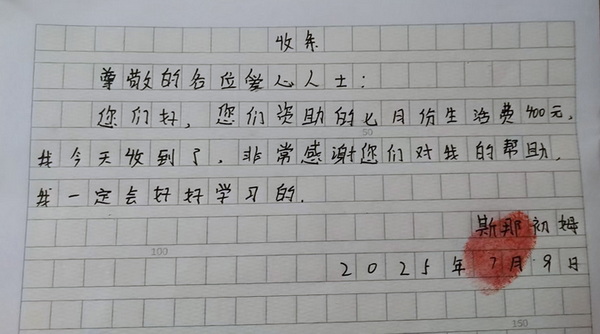 收条
尊敬的各位爱心人士：
您们好，您们资助的七月份生活费400元，
50
我今天收到了，非常感谢您们对我的帮助，
我一定会好好学习的.
斯那初姆
100
2025年7月9日
150